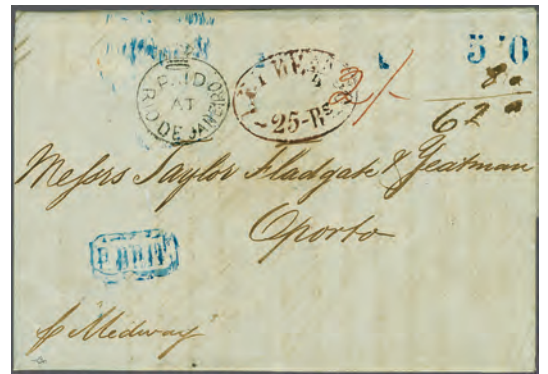 5 0
PAID
AT
RIO DE JANEIRO
~25-Rs
2/-
80
62
Messrs Taylor Fladgate & Yeatman
Oporto
P. BRIT.
p "Medway"